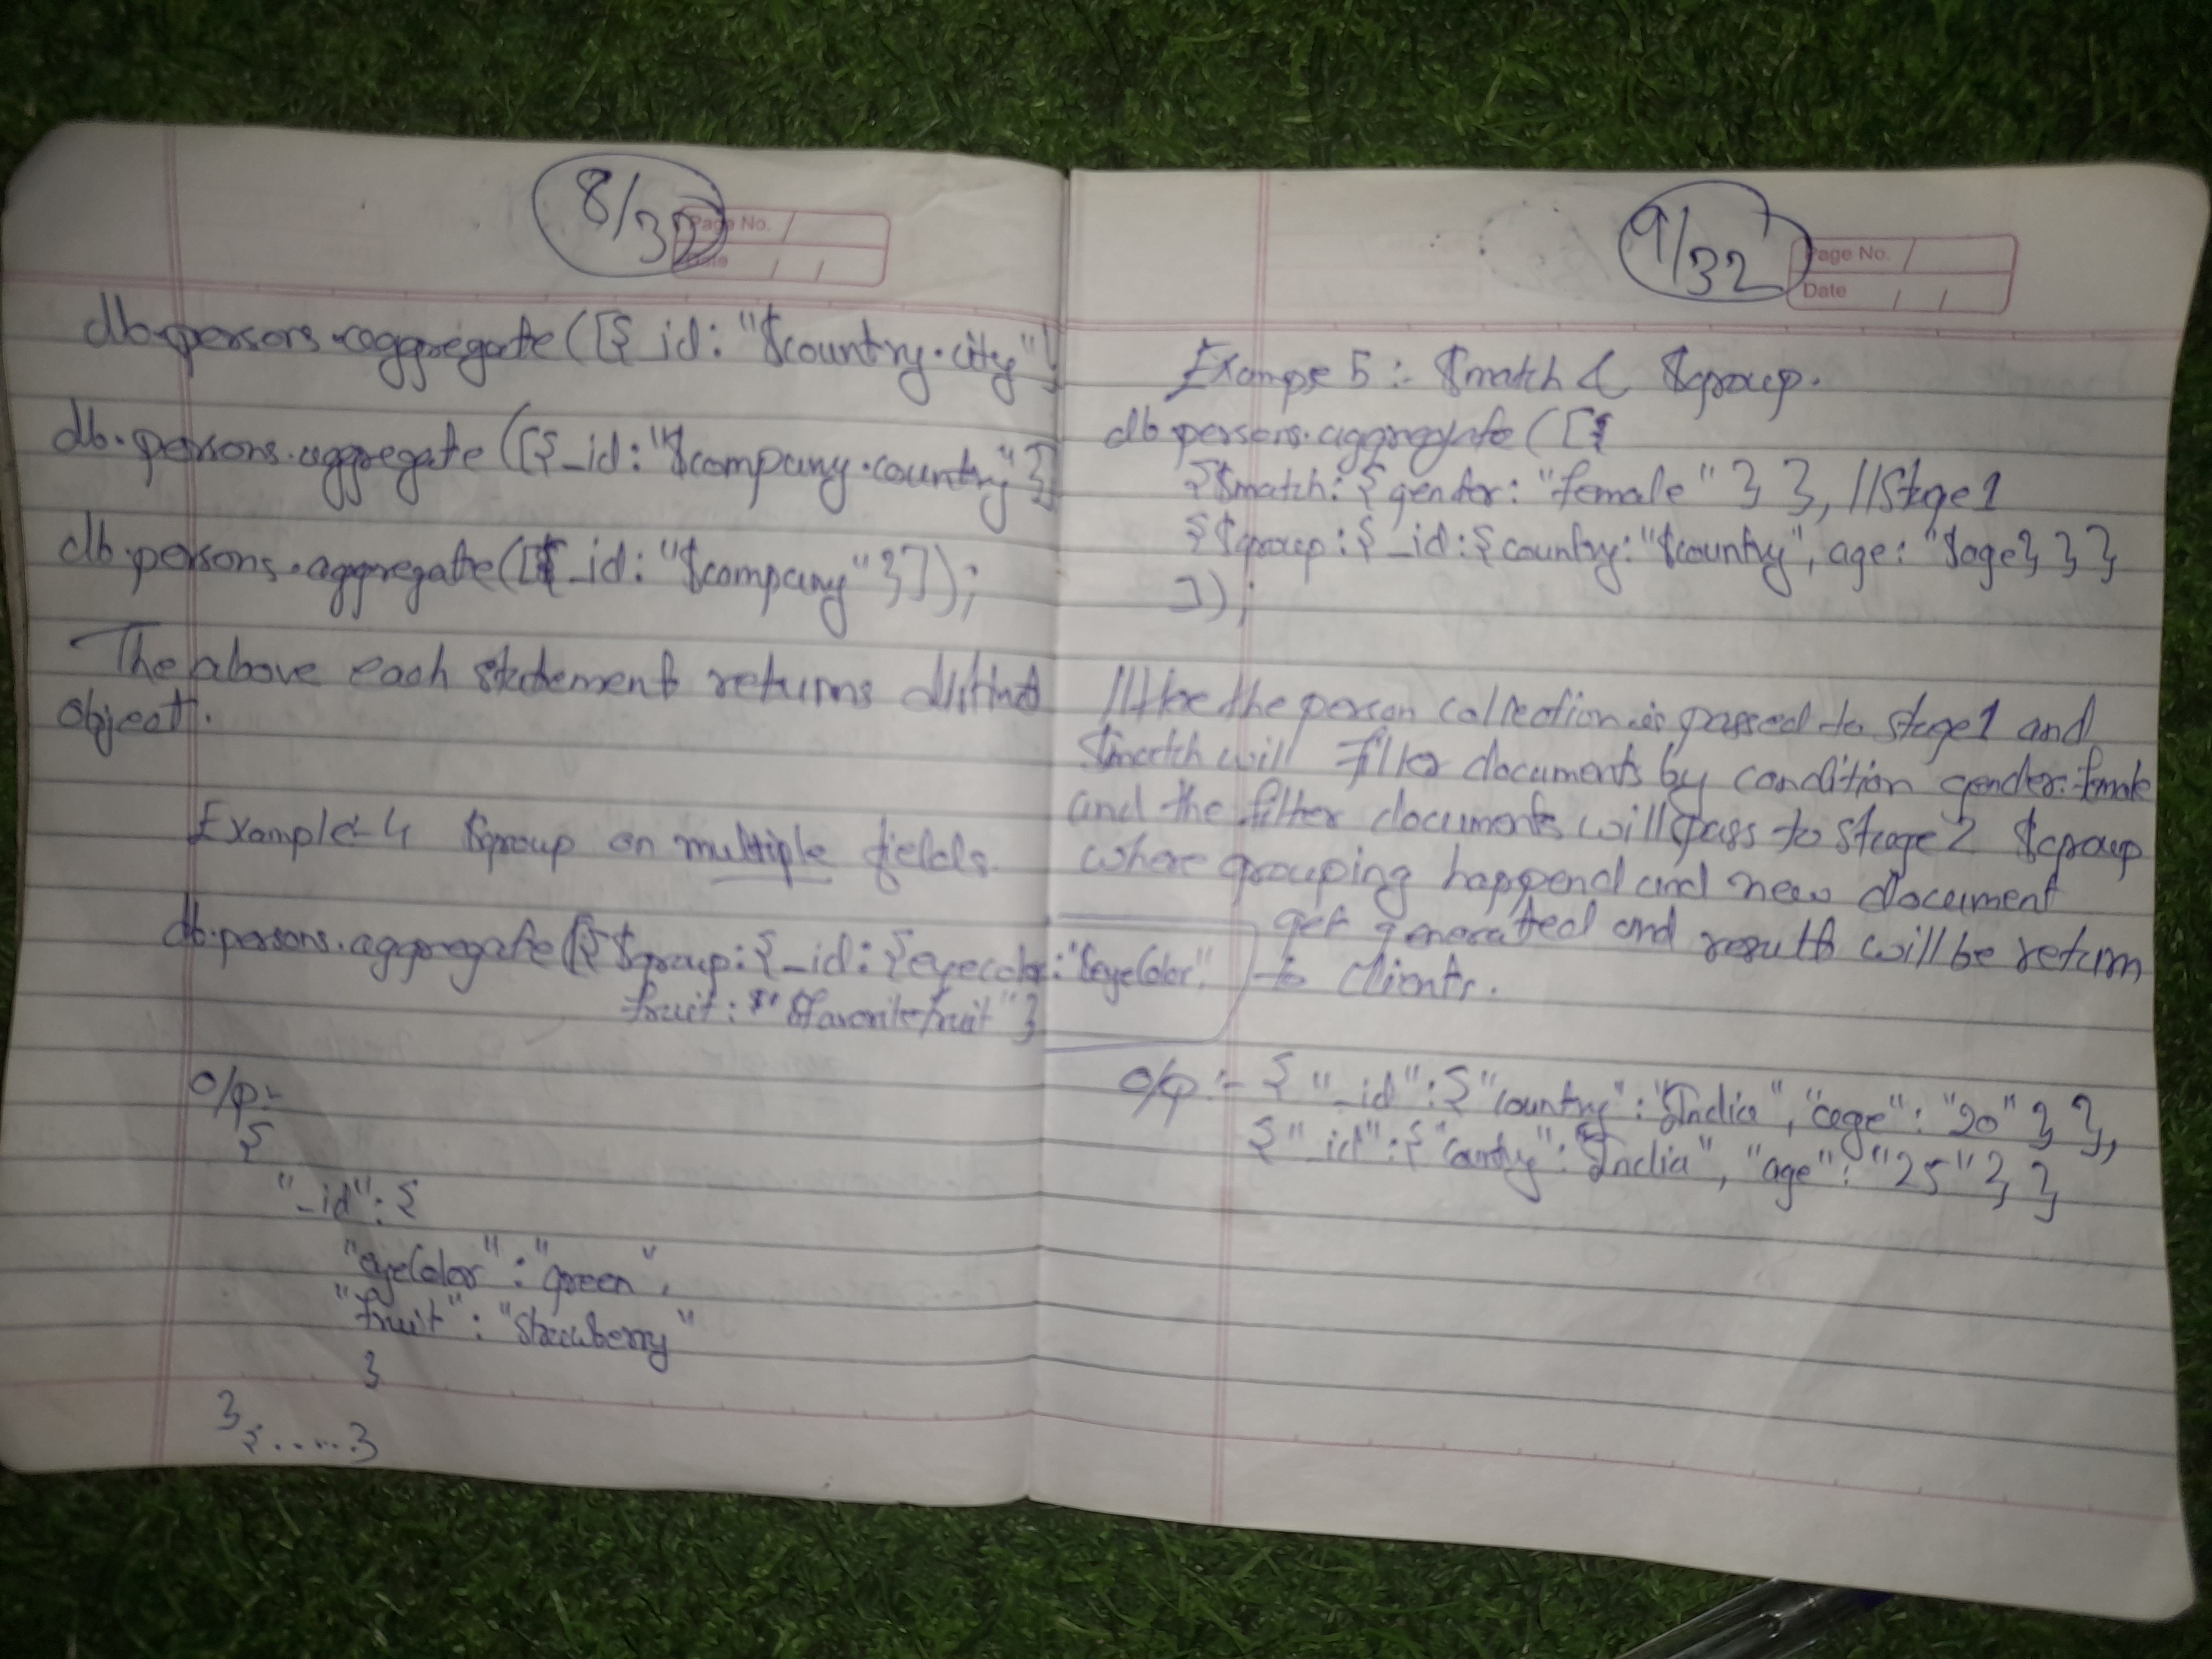 8/32
Page No.
Date / /
db.persons.aggregate([{_id: "$country.city"}
db.persons.aggregate([{_id: "$company.country"}]
db.persons.aggregate([{_id: "$company"}]);
The above each statement returns ditinct
object.
Example-4 $group on multiple fields.
db.persons.aggregate([{$group:{_id:{eyecolor:"$eyeColor",
fruit: "$favoritefruit"}
o/p:-
{
"_id": {
"eyeColor": "green",
"fruit": "strawberry"
}
}, {.....}
9/32
Page No.
Date / /
Exampe 5:- $match & $group.
db.persons.aggregate([
{$match:{gender: "female"}}, //Stage 1
{$group:{_id:{country:"$country", age: "$age}}},
]);
//Here the person collection is passed to stage 1 and
$match will filter documents by condition gender:female
and the filter documents will pass to Stage 2 $group
where grouping happend and new document
get generated and result will be return
to Clients.
o/p:- {"_id":{"country":"India", "age": "20"}},
{"_id":{"country": "India", "age": "25"}},